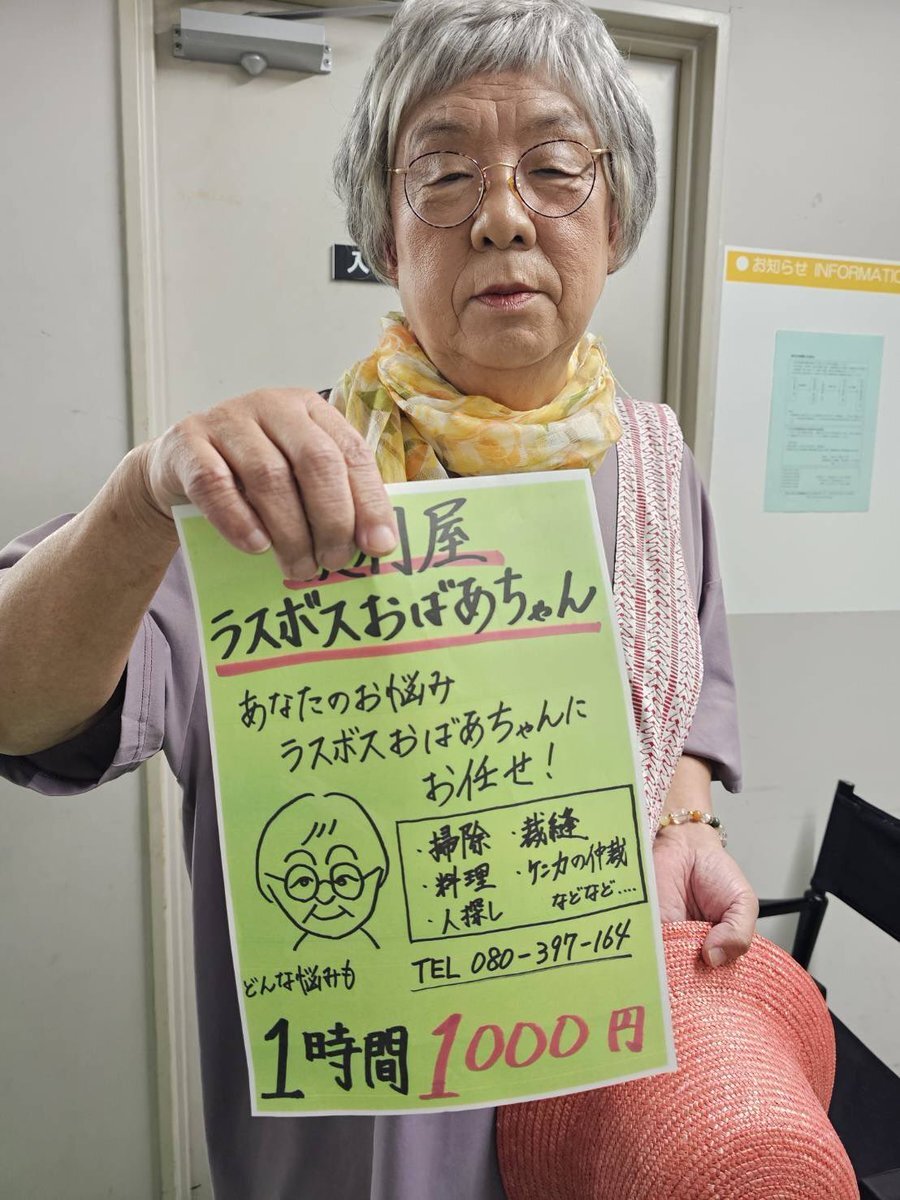 入
● お知らせ INFORMATIO
屋
ラスボスおばあちゃん
あなたのお悩み
ラスボスおばあちゃんに
お任せ!
・掃除 ・裁縫
・料理 ・ケンカの仲裁
・人探し などなど....
TEL 080-397-164
どんな悩みも
1時間 1000円